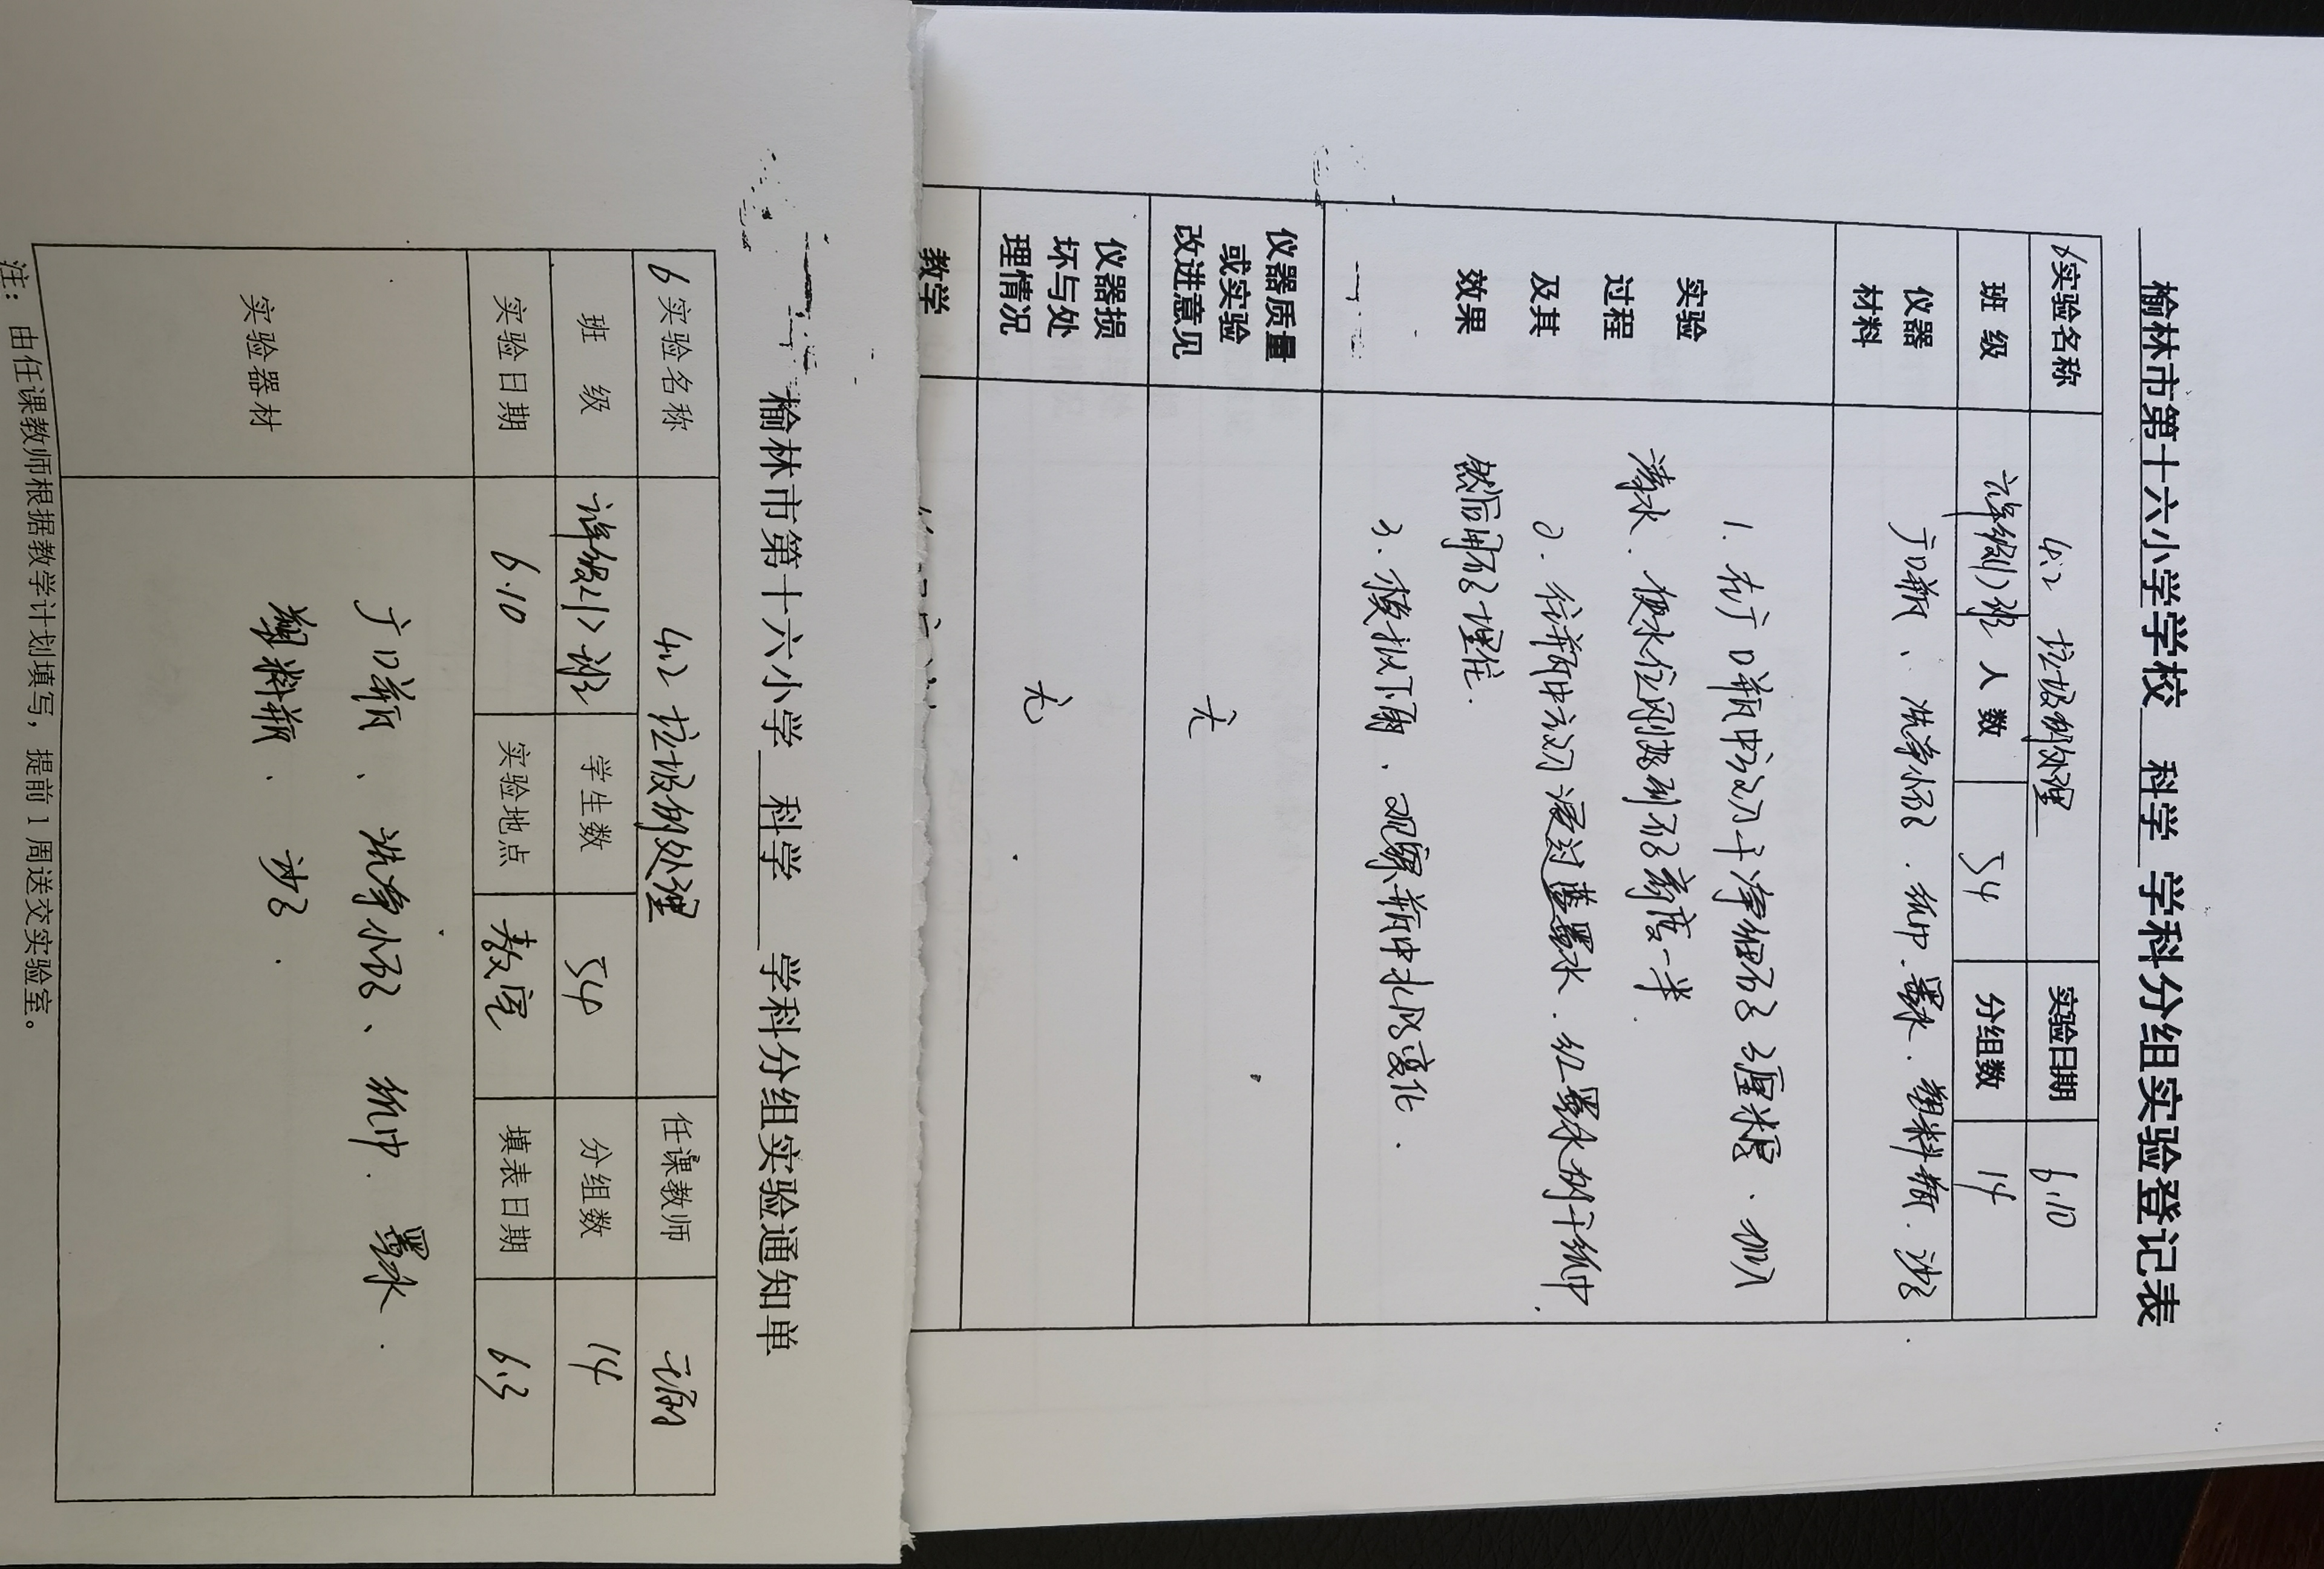 榆林市第十六小学学校 科学 学科分组实验登记表
6实验名称 4.2 垃圾的处理 实验日期 6.10
班级 六年级(1)班 人数 54 分组数 14
仪器材料 广口瓶、洗净小石、纸巾、墨水、塑料瓶、沙石
实验过程及其效果
1. 在广口瓶中放入干净细石3厘米厚、加入
清水、使水位刚好到石高度一半.
2. 往瓶中放入浸过蓝墨水、红墨水的干纸巾.
然后用石埋住.
3. 模拟下雨、观察瓶中水的变化.
仪器质量或实验改进意见 无
仪器损坏与处理情况 无
教学
榆林市第十六小学 科学 学科分组实验通知单
6实验名称 4.2 垃圾的处理 任课教师
班级 六年级(1)班 学生数 54 分组数 14
实验日期 6.10 实验地点 教室 填表日期 6.3
实验器材
广口瓶、洗净小石、纸巾、墨水.
塑料瓶、沙石.
注：由任课教师根据教学计划填写，提前1周送交实验室。